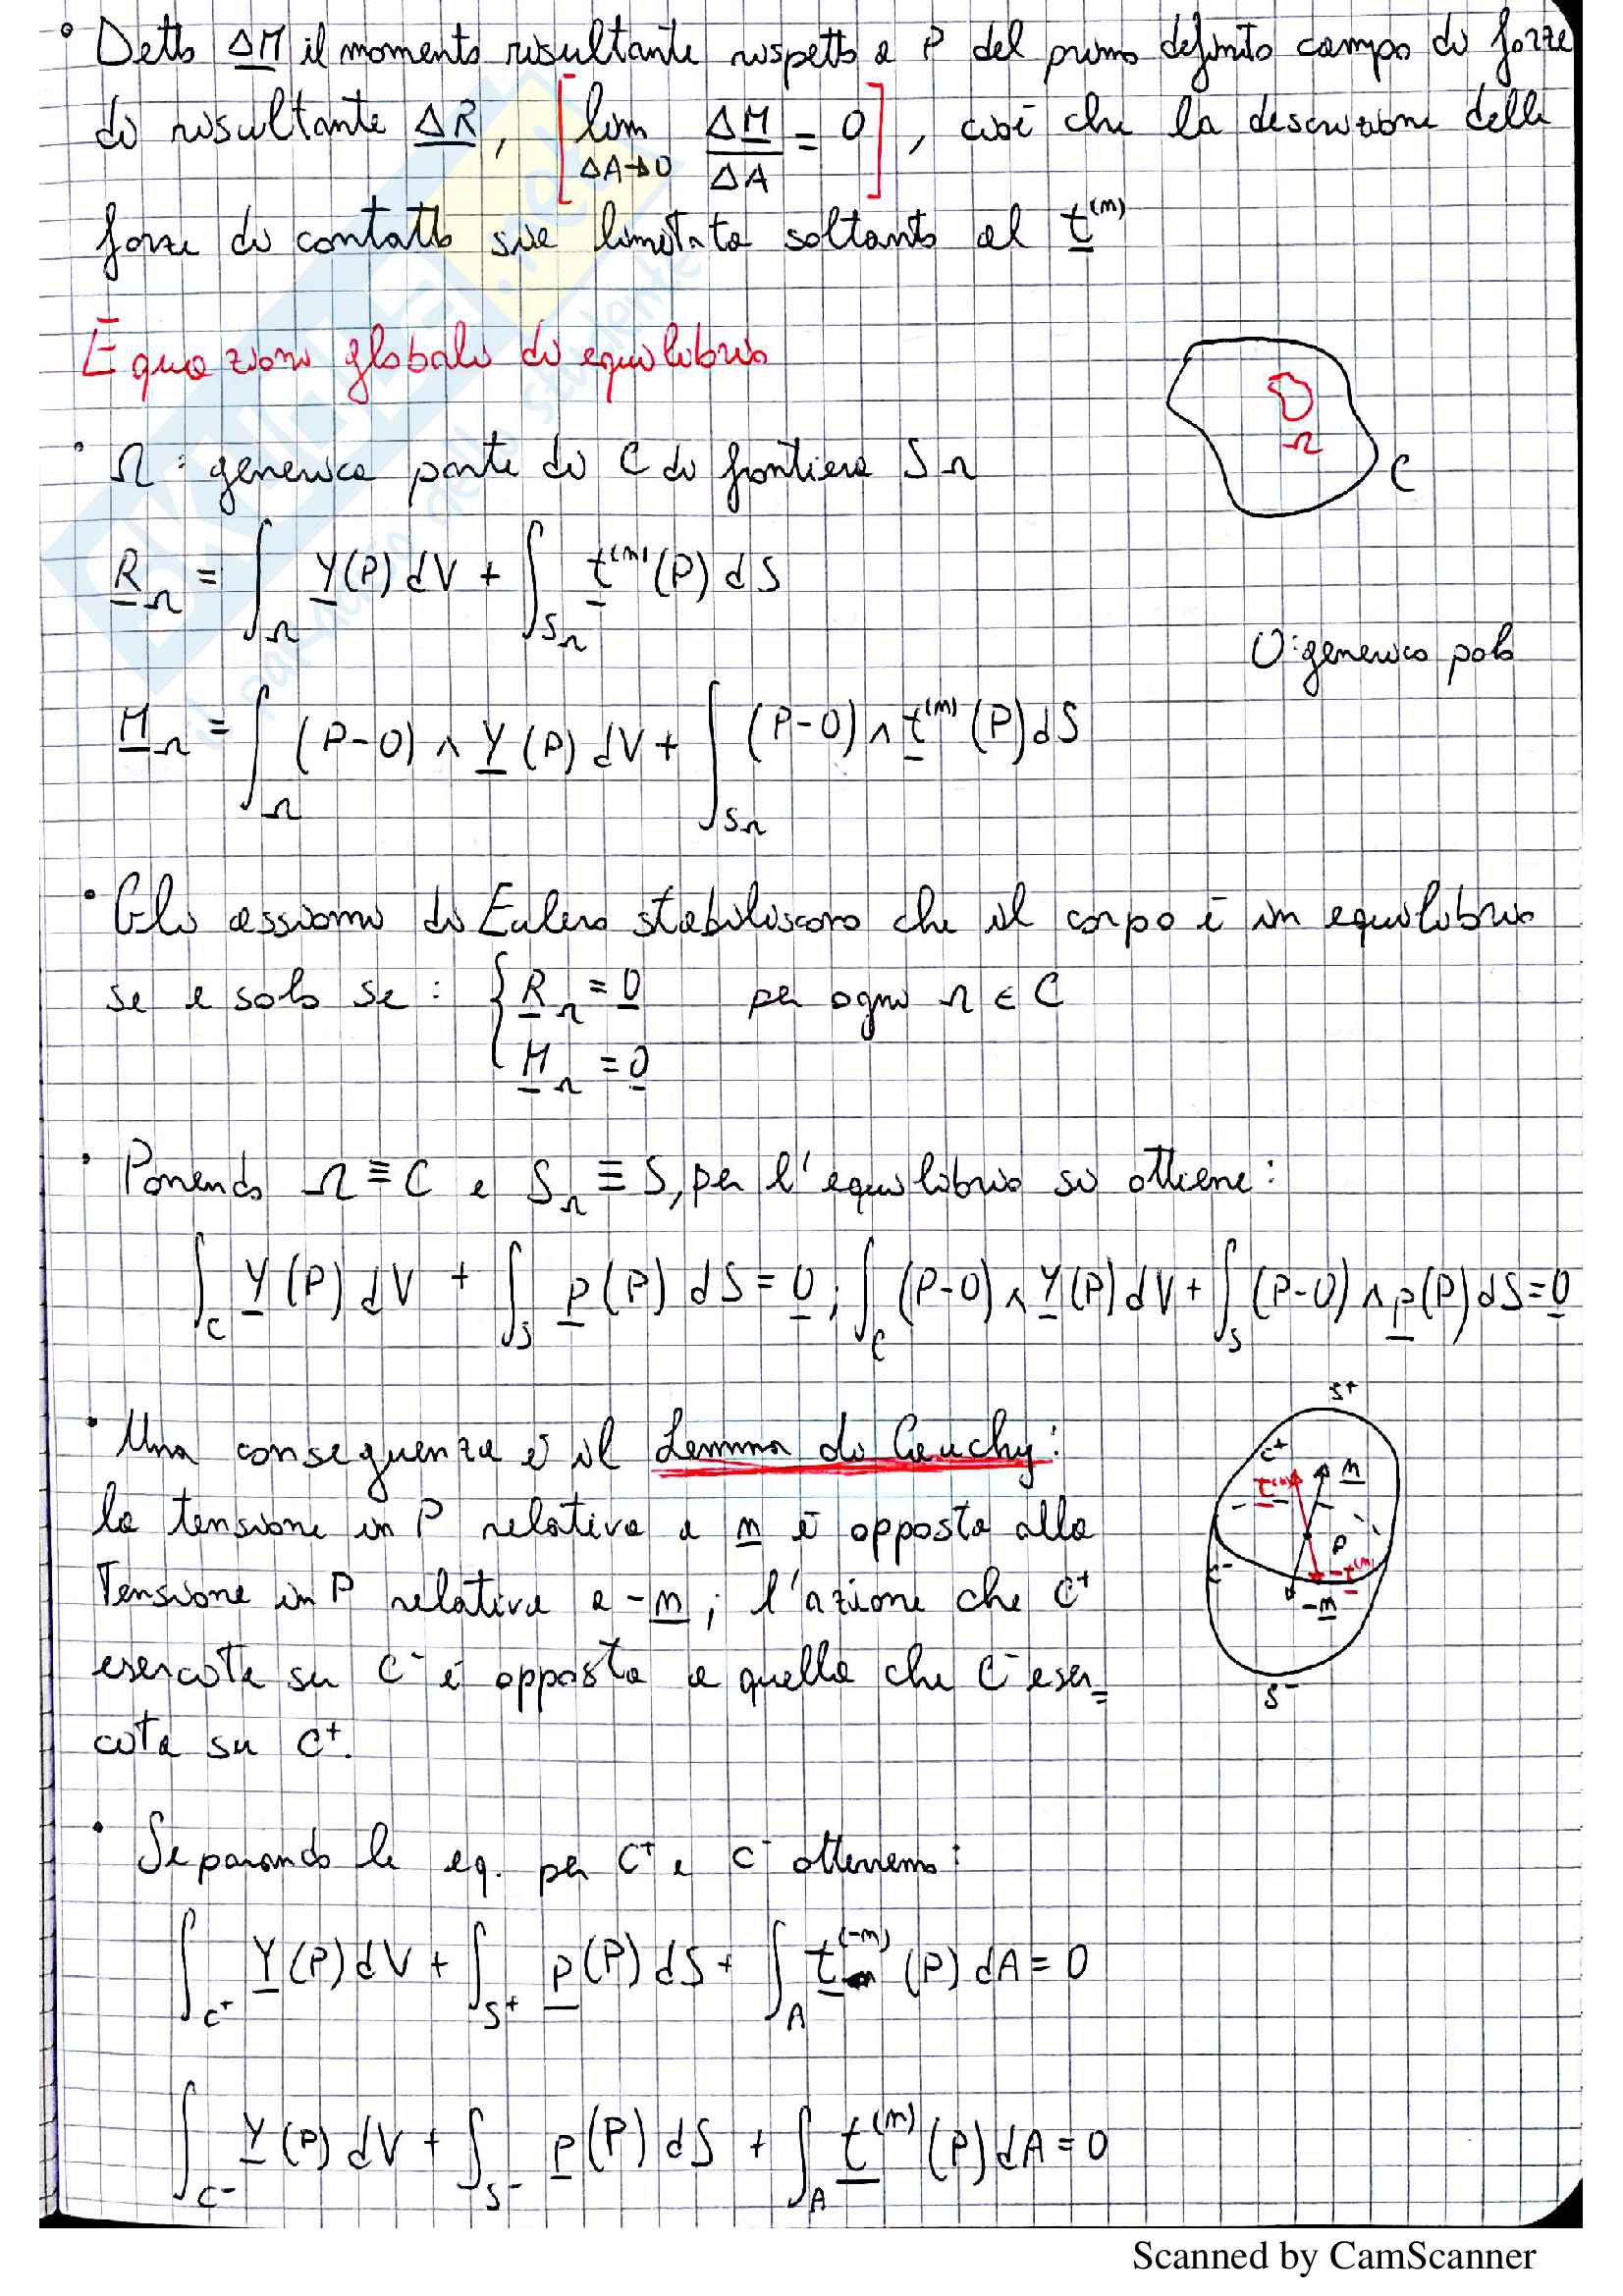 • Detto ΔM il momento risultante rispetto a P del primo definito campo di forze
di risultante ΔR, [lim ΔA→0 ΔM/ΔA = 0], cioè che la descrizione delle
forze di contatto sia limitata soltanto al t⁽ⁿ⁾
Equazioni globali di equilibrio
• Ω : generica parte di C di frontiera SΩ
Ω
C
R_Ω = ∫_Ω Y(P) dV + ∫_SΩ t⁽ⁿ⁾(P) dS
O: generico polo
M_Ω = ∫_Ω (P-O) ∧ Y(P) dV + ∫_SΩ (P-O) ∧ t⁽ⁿ⁾(P) dS
• Gli assiomi di Eulero stabiliscono che il corpo è in equilibrio
se e solo se : { R_Ω = 0 per ogni Ω ∈ C
M_Ω = 0
• Ponendo Ω ≡ C e S_Ω ≡ S, per l'equilibrio si ottiene:
∫_C Y(P) dV + ∫_S p(P) dS = 0 ; ∫_C (P-O) ∧ Y(P) dV + ∫_S (P-O) ∧ p(P) dS = 0
• Una conseguenza è il Lemma di Cauchy:
la tensione in P relativa a n è opposta alla
tensione in P relativa a -n ; l'azione che C⁺
esercita su C⁻ è opposta a quella che C⁻ eser=
cita su C⁺.
S⁺
C⁺
n
t⁽ⁿ⁾
P
C⁻
-t⁽ⁿ⁾
-n
S⁻
• Separando le eq. per C⁺ e C⁻ otterremo:
∫_C⁺ Y(P) dV + ∫_S⁺ p(P) dS + ∫_A t⁽⁻ⁿ⁾(P) dA = 0
∫_C⁻ Y(P) dV + ∫_S⁻ p(P) dS + ∫_A t⁽ⁿ⁾(P) dA = 0
Scanned by CamScanner